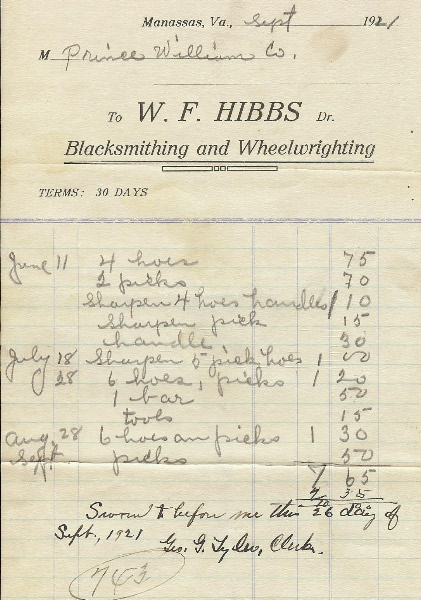 Manassas, Va., Sept 1921
M Prince William Co.
To W. F. HIBBS Dr.
Blacksmithing and Wheelwrighting
TERMS: 30 DAYS
June 11 4 hoes 75
2 picks 70
Sharpen 4 hoes handles 1 10
Sharpen pick 15
handle 30
July 18 Sharpen 5 pick hoes 1 00
28 6 hoes, picks 1 20
1 bar 50
tools 15
Aug. 28 6 hoes an picks 1 30
Sept. picks 50
7 65
Sworn to before me this 26 day of
Sept., 1921
Geo. G. Tyler, Clerk.
743